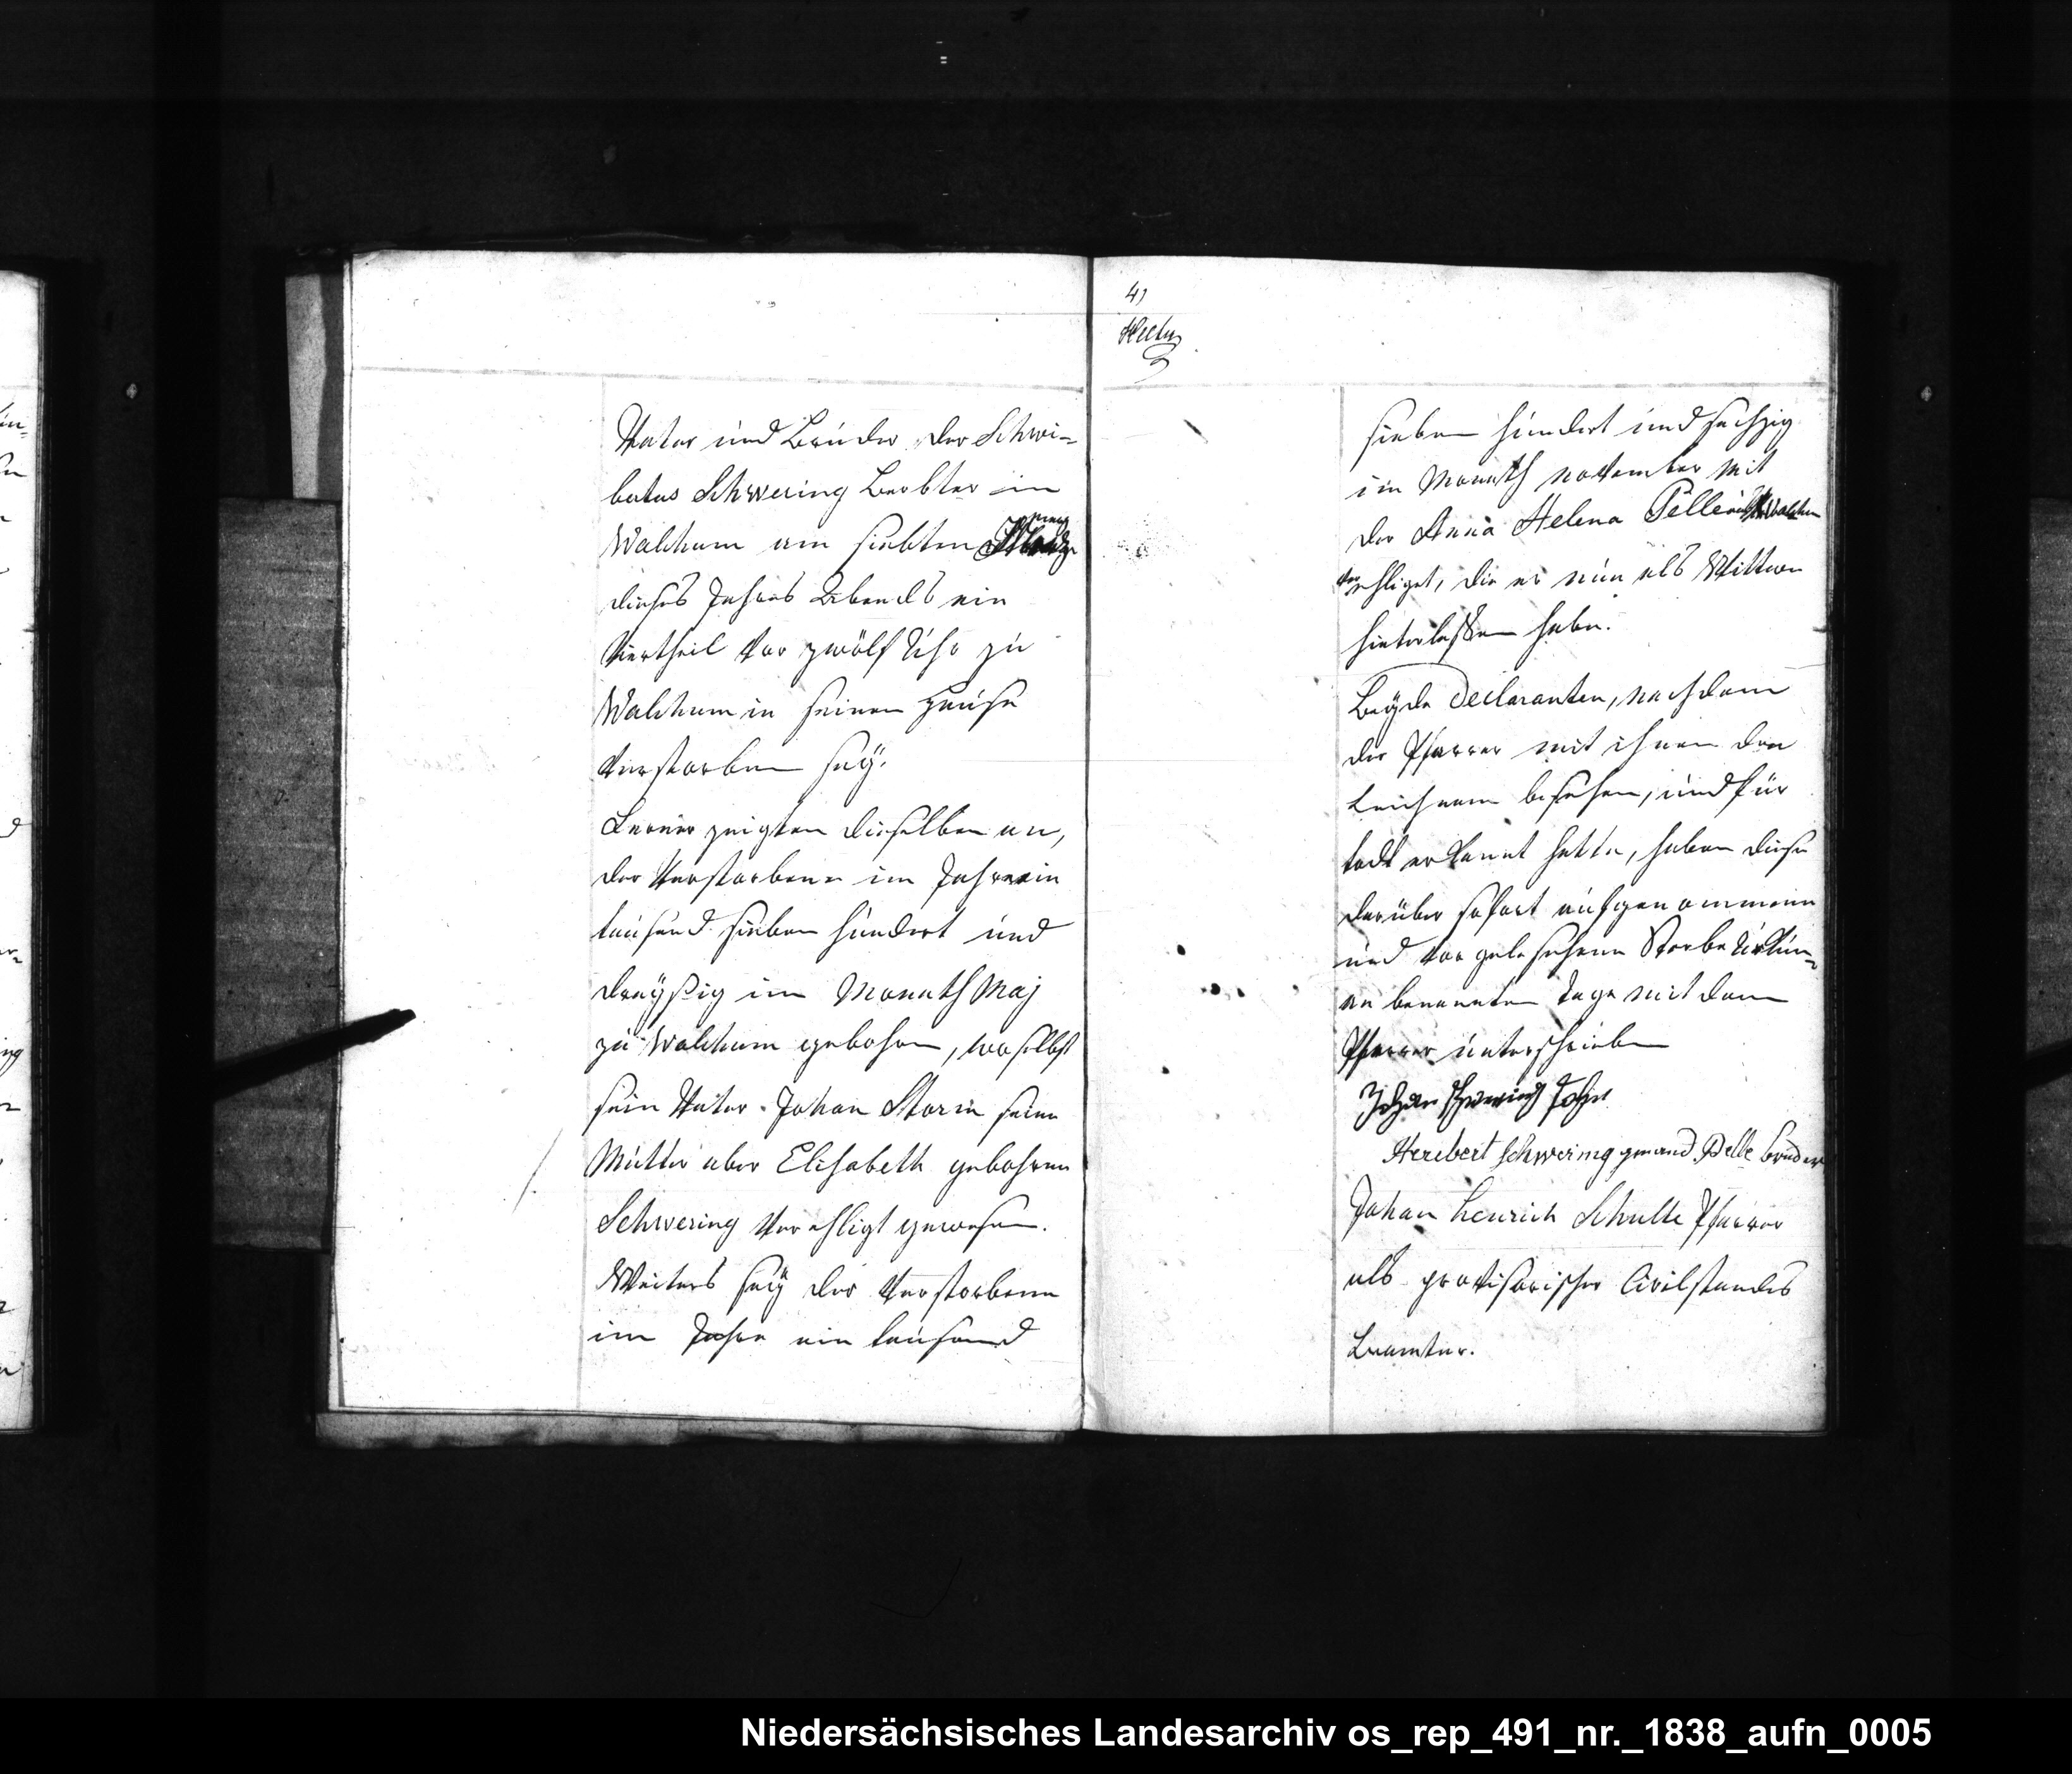 Vater und Bruder, der Schwi-
betus Schwering Beerbter in
Walchum am siebten
dieses Jahres Abends ein
Viertheil vor zwölf Uhr zu
Walchum in seinem Hause
verstorben seÿ.
Ferner zeigten dieselben an,
der Verstorbene im Jahre ein
tausend sieben hundert und
dreÿßig im Monath Maj
zu Walchum gebohren, woselbst
sein Vater Johan Storm seine
Mutter aber Elisabeth gebohrne
Schwering verehligt gewesen.
Weiters seÿ der Verstorbene
im Jahre ein tausend
4)
sieben hundert und sechzig
im Monath november mit
der Anna Helena Pelle aus Walchum
verehliget, die er nun als Wittwe
hinterlaßen habe.
Beÿde Declaranten, nachdem
der Pfarrer mit ihnen den
Leichnam besehen, und für
todt erkannt hatte, haben diese
darüber sofort aufgenommene
und vorgelesene Sterbe Urkun-
an benannten Tage mit dem
Pfarrer unterschrieben
Johan Schwering Sohn
Herebert Schwering genand Pelle bruder
Johan Henrich Schulte Pfarrer
als provisorischer Civilstandes
Beamter.
Niedersächsisches Landesarchiv os_rep_491_nr._1838_aufn_0005